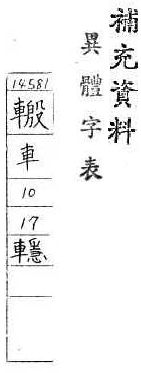 補充資料
異體字表
14581
車
10
17